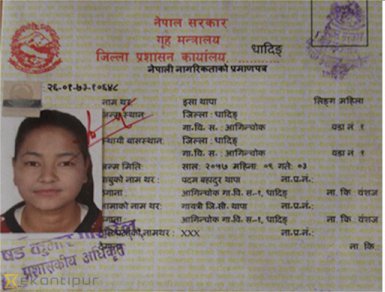 नेपाल सरकार
गृह मन्त्रालय
जिल्ला प्रशासन कार्यालय, धादिङ
नेपाली नागरिकताको प्रमाणपत्र
२६-०१-७३-१०६४८
नाम थर : इसा थापा लिङ्ग महिला
जन्म स्थान : जिल्ला : धादिङ
गा.वि. स. : आगिन्चोक वडा नं १
स्थायी बासस्थान : जिल्ला : धादिङ
गा.वि. स. : आगिन्चोक वडा नं १
जन्म मिति : साल: २०५७ महिना: ०९ गते: ०३
बाबुको नाम थर : पदम बहादुर थापा ना.प्र.नं.:
ठेगाना आगिन्चोक गा.वि. स-१, धादिङ ना कि वंशज
आमाको नाम थर : गायत्री जि.सी. थापा ना.प्र.नं.:
ठेगाना आगिन्चोक गा.वि. स-१, धादिङ ना. कि वंशज
नामथर : XXX ना.प्र.नं.:
ना कि .
प्रशासकीय अधिकृत
ekantipur